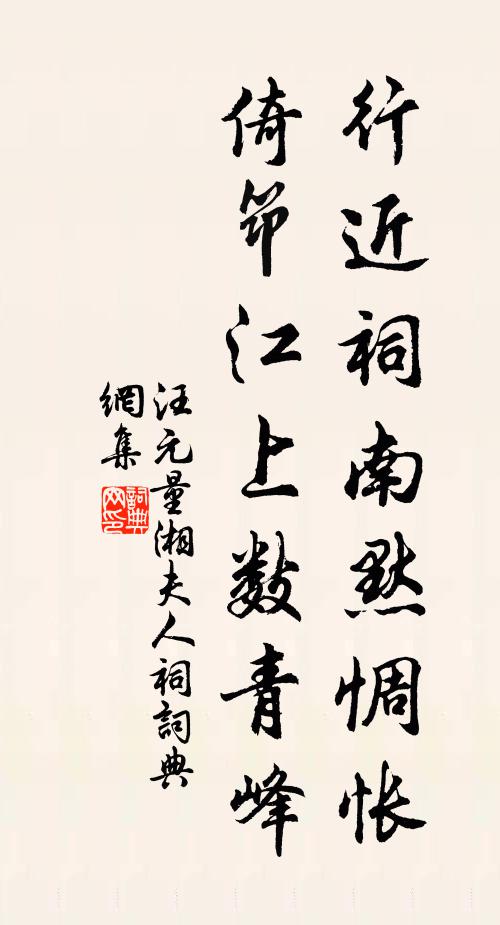 行近祠南黙惆怅
倚筇江上数青峰
汪元量湘夫人祠詞典
網集
詞典
网印